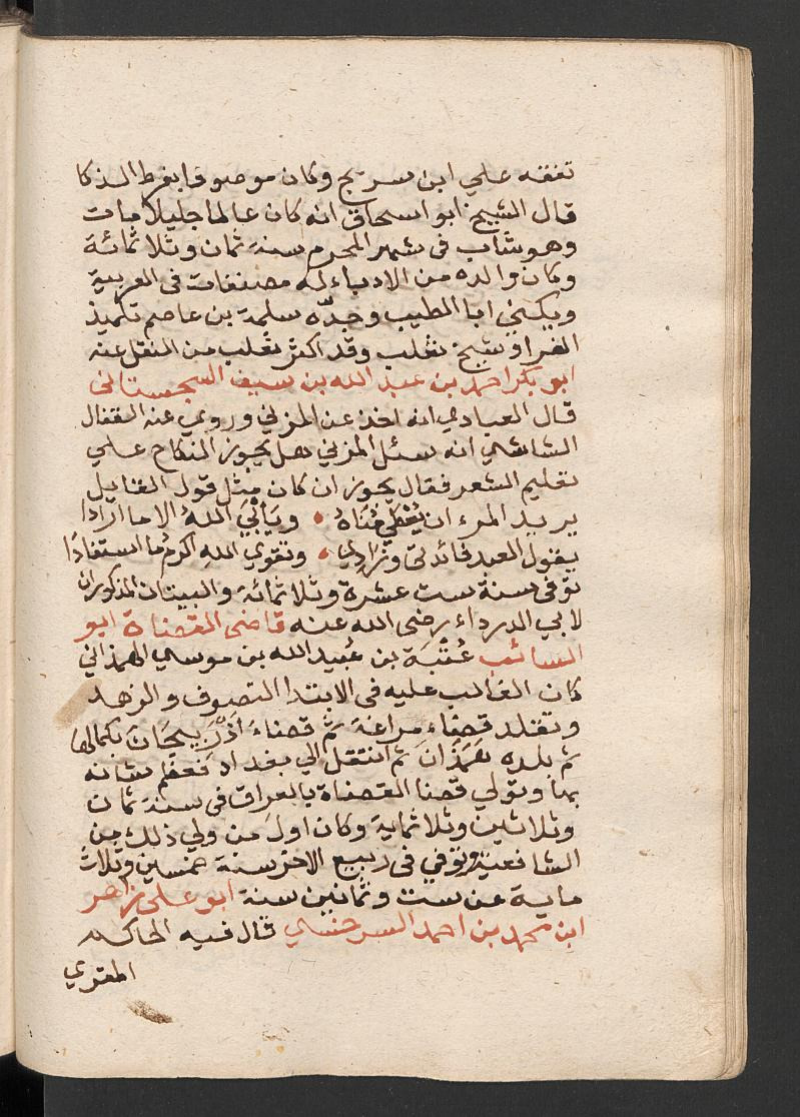 تفقه علي ابن سريج وكان موصوفا بفرط الذكا
قال الشيخ ابو اسحاق انه كان عالما جليلا مات
وهو شاب في شهر المحرم سنة ثمان وثلاثمائة
وكان والده من الادباء له مصنفات في العربية
ويكني ابا الطيب وجدّه سلمة بن عاصم تلميذ
الفرا وشيخ ثعلب وقد اكثر ثعلب من النقل عنه
ابو بكر احمد بن عبد الله بن سيف السجستاني
قال العبادي انه اخذ عن المزني وروي عنه القفال
الشاشي انه سئل المزني هل يجوز النكاح علي
تعليم الشعر فقال يجوز ان كان مثل قول القايل
يريد المرء ان يُعْطي مُنَاهُ • ويَأْبَي اللهُ الا ما ارَادا
يقول العبد فائدتي وزادي • وتقوي الله اكرمُ ما استفادَا
توفي سنة ست عشرة وثلاثمائة والبيتان المذكوران
لابي الدرداء رضي الله عنه قاضي القضاة ابو
السائب عُتْبَة بن عُبيد الله بن موسي الهمذاني
كان الغالب عليه في الابتدا التصوف والزهد
وتقلد قضاء مراغة ثم قضاء اَذْرَبيجَان بكمالها
ثم بلده هَمَذَان ثم انتقل الي بغداد فعظم شانه
بها وتولي قضا القضاة بالعراق في سنة ثمان
وثلاثين وثلاثماية وكان اول من ولي ذلك من
الشافعية وتوفي في ربيع الاخر سنة خمسين وثلاث
ماية عن ست وثمانين سنة ابو علي زاهر
ابن محمد بن احمد السرخسي قال فيه الحاكم
المقري